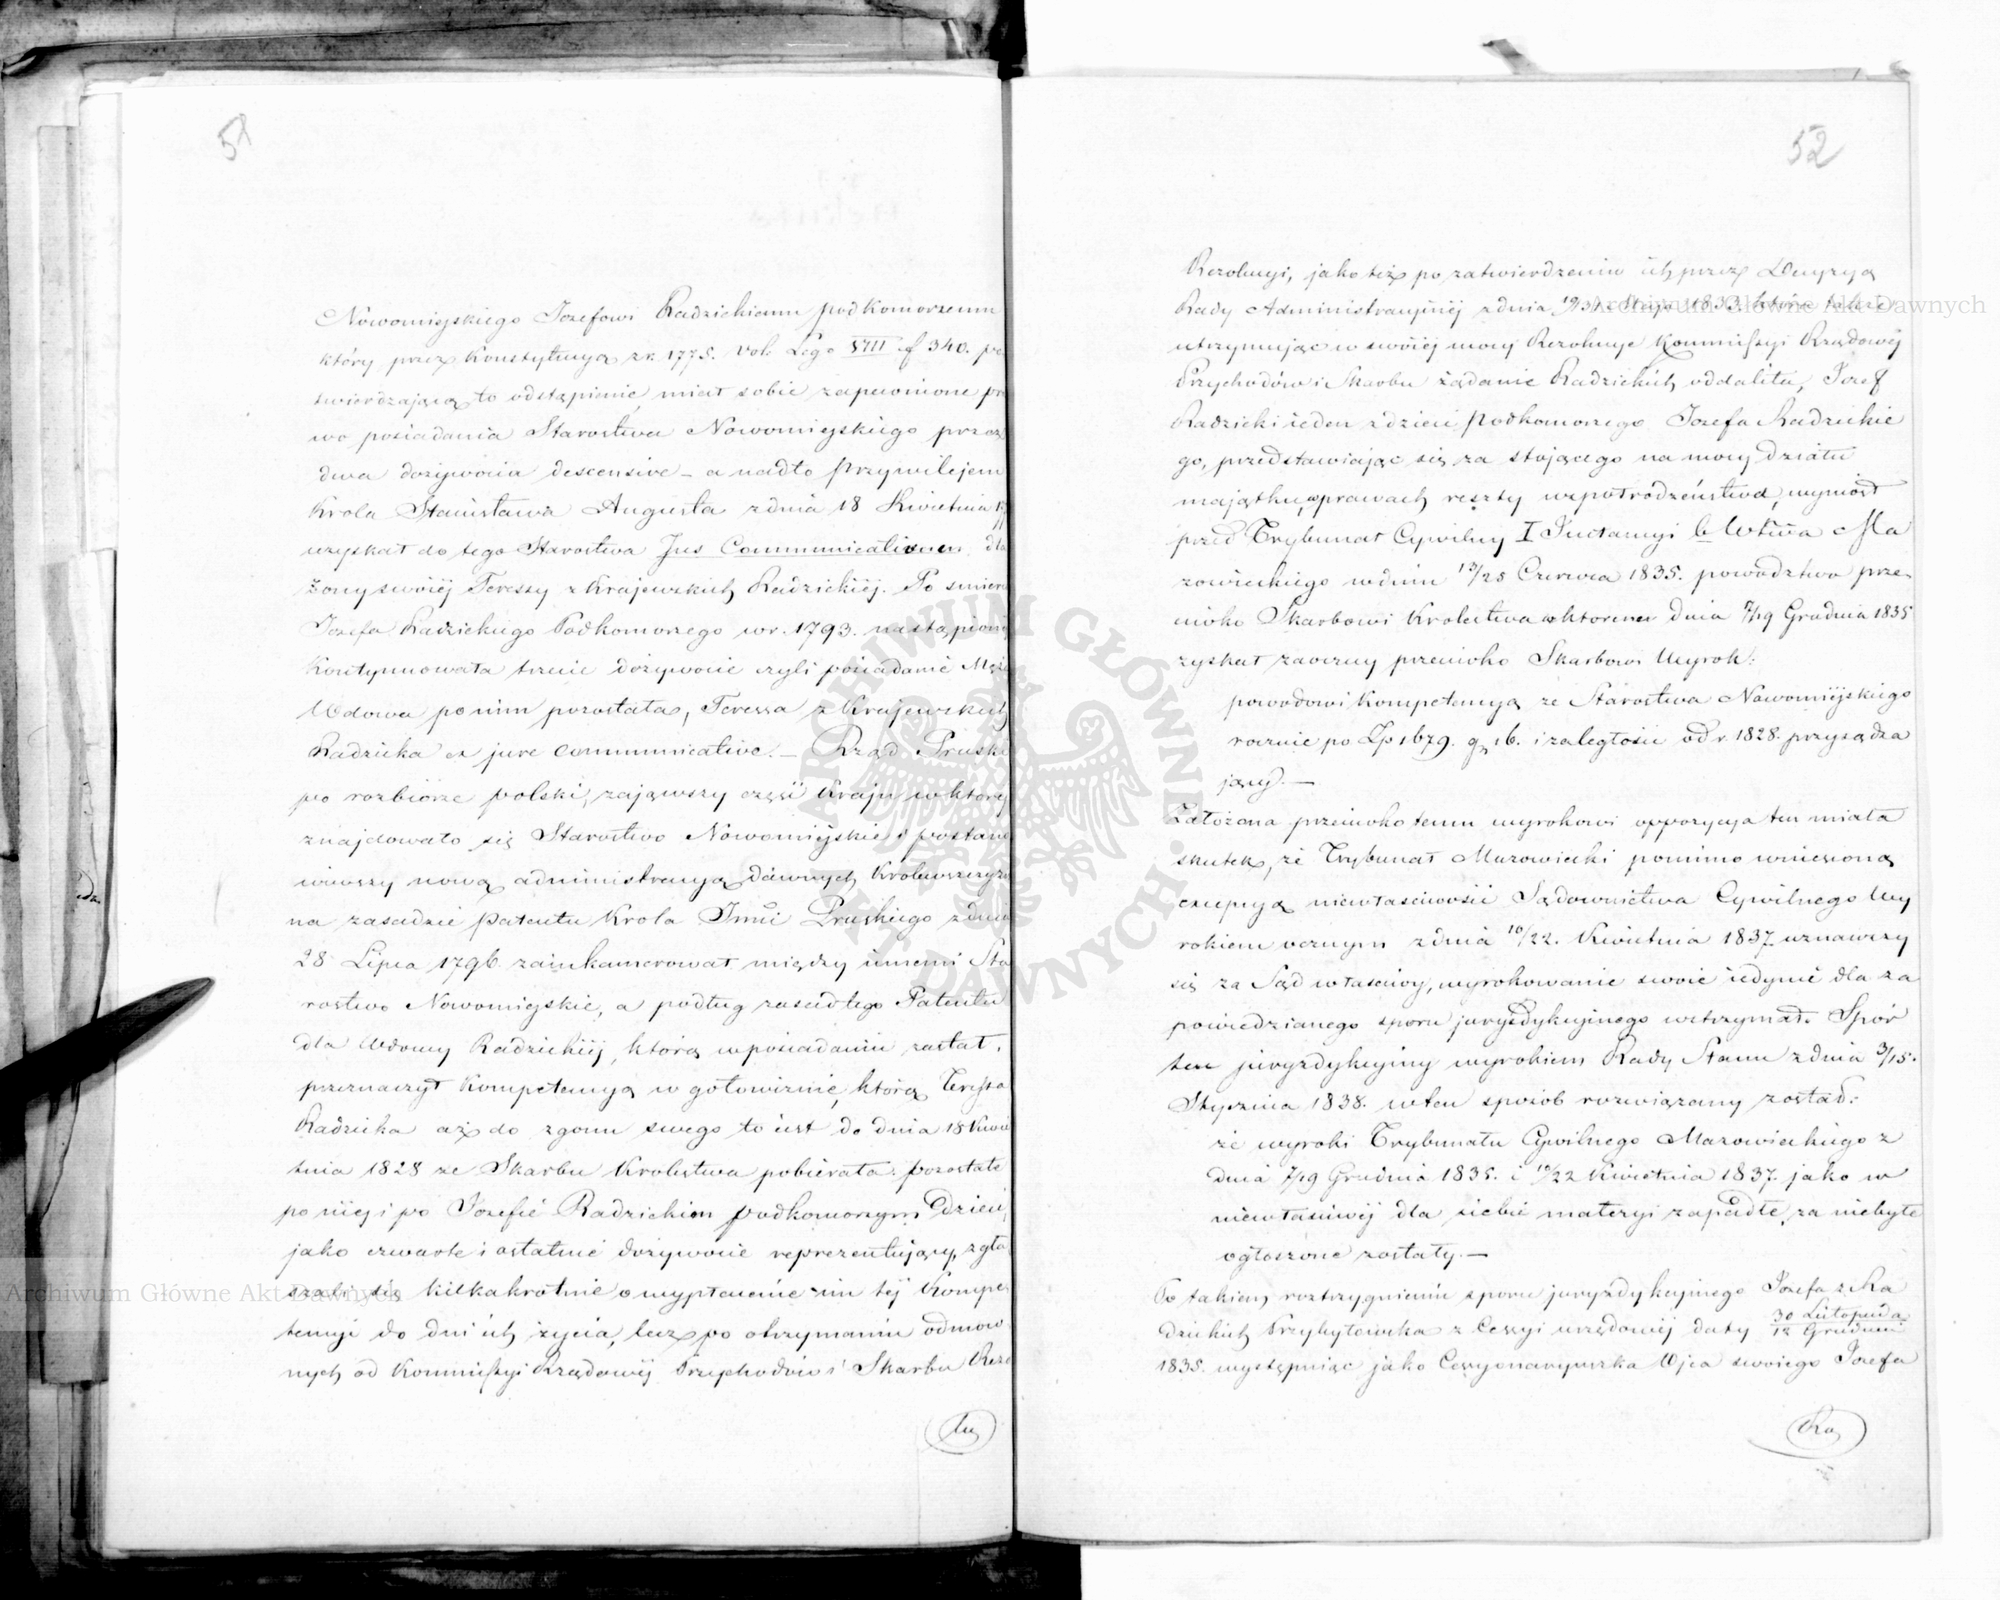 51
Nowomieyskiego Jozefowi Radzickiemu podkomorzemu
który przez Konstytucyą z r. 1775. Vol. Lego VIII f 340. po
twierdzającą to odstąpienie, miał sobie zapewnione pra
wo posiadania Starostwa Nowomieyskiego przez
dwa dożywocia descensive – a nadto Przywilejem
Krola Stanisława Augusta z dnia 18 Kwietnia
uzyskał do tego Starostwa Jus Communicativum dla
żony swoiéj Teressy z Krajewskich Radzickiéj. Po śmierci
Jozefa Radzickiego Podkomorzego w r. 1793. nastąpioney
Kontynuowała trzecie dożywocie czyli posiadanie
Wdowa po nim pozostała, Teressa z Krajewskich
Radzicka ex jure communicativo. – Rząd Pruski
po rozbiorze polski, zająwszy część Kraju w którey
znajdowało się Starostwo Nowomiejskie i postano
wiwszy nową administracyą dawnych Krolewszczyzn
na zasadzie Patentu Krola Jmci Pruskiego z dnia
28 Lipca 1796 zainkamerował między innemi Sta
rostwo Nowomiejskie, a podług zasad tego Patentu
dla Wdowy Radzickiéj, którą w posiadaniu zastał,
przeznaczył Kompetencyą w gotowiznie, którą Teressa
Radzicka aż do zgonu swego to iest do dnia 18 Kwie
tnia 1828 ze Skarbu Krolestwa pobierała. Pozostałe
po niéj i po Jozefie Radzickim Podkomorzym Dzieci,
jako czwarte i ostatnie dożywocie reprezentujący, zgła
szali się kilkakrotnie o wypłacenie im téj Kompe
tencyi do dni ich życia, lecz po otrzymaniu odmow
nych od Kommissyi Rządowéj Przychodów i Skarbu Rezo
lu
52
Rezolucyi, jako też po zatwierdzeniu ich przez Decyzyą
Rady Administracyjnéj z dnia 19/31 Maja 1833. która także
utrzymując w swoiéj mocy Rezolucye Kommissyi Rządowéj
Przychodów i Skarbu żądanie Radzickich oddaliła, Jozef
Radzicki ieden z dzieci Podkomorzego Jozefa Radzickie
go, przedstawiając się za stojącego na mocy działu
majątku, w prawach reszty współrodzeństwa, wyniósł
przed Trybunał Cywilny I Instancyi b. Wtwa Ma
zowieckiego w dniu 13/25 Czerwca 1835. powództwo prze
ciwko Skarbowi Krolestwa w ktorem dnia 7/19 Grudnia 1835
zyskał zaoczny przeciwko Skarbowi Wyrok:
powodowi Kompetencyą ze Starostwa Nowomiéjskiego
rocznie po Zp 1679. g. 16. i zaległości od r. 1828. przysądza
jący. –
Założona przeciwko temu wyrokowi oppozycya ten miała
skutek, że Trybunał Mazowiecki pomimo wniesioną
excepcyą niewłaściwości Sądownictwa Cywilnego Wy
rokiem ocznym z dnia 10/22. Kwietnia 1837. uznawszy
się za Sąd właściwy, wyrokowanie swoie iedynie dla za
powiedzianego sporu juryzdykcyjnego wstrzymał. Spór
ten juryzdykcyiny wyrokiem Rady Stanu z dnia 3/15.
Stycznia 1838. w ten sposób rozwiązany został:
że wyroki Trybunału Cywilnego Mazowieckiego z
dnia 7/19 Grudnia 1835. i 10/22 Kwietnia 1837. jako w
niewłaściwéj dla siebie materyi zapadłe, za niebyłe
ogłoszone zostały. –
Po takiem roztrzygnieniu sporu juryzdykcyinego Jozefa z Ra
dzickich Przybytowska z Cessyi urzędowéj daty 30 Listopada / 12 Grudnia
1835. występując jako Cessyonaryuszka Ojca swoiego Jozefa
Ra
Archiwum Główne Akt Dawnych
Archiwum Główne Akt Dawnych
ARCHIWUM GŁÓWNE AKT DAWNYCH